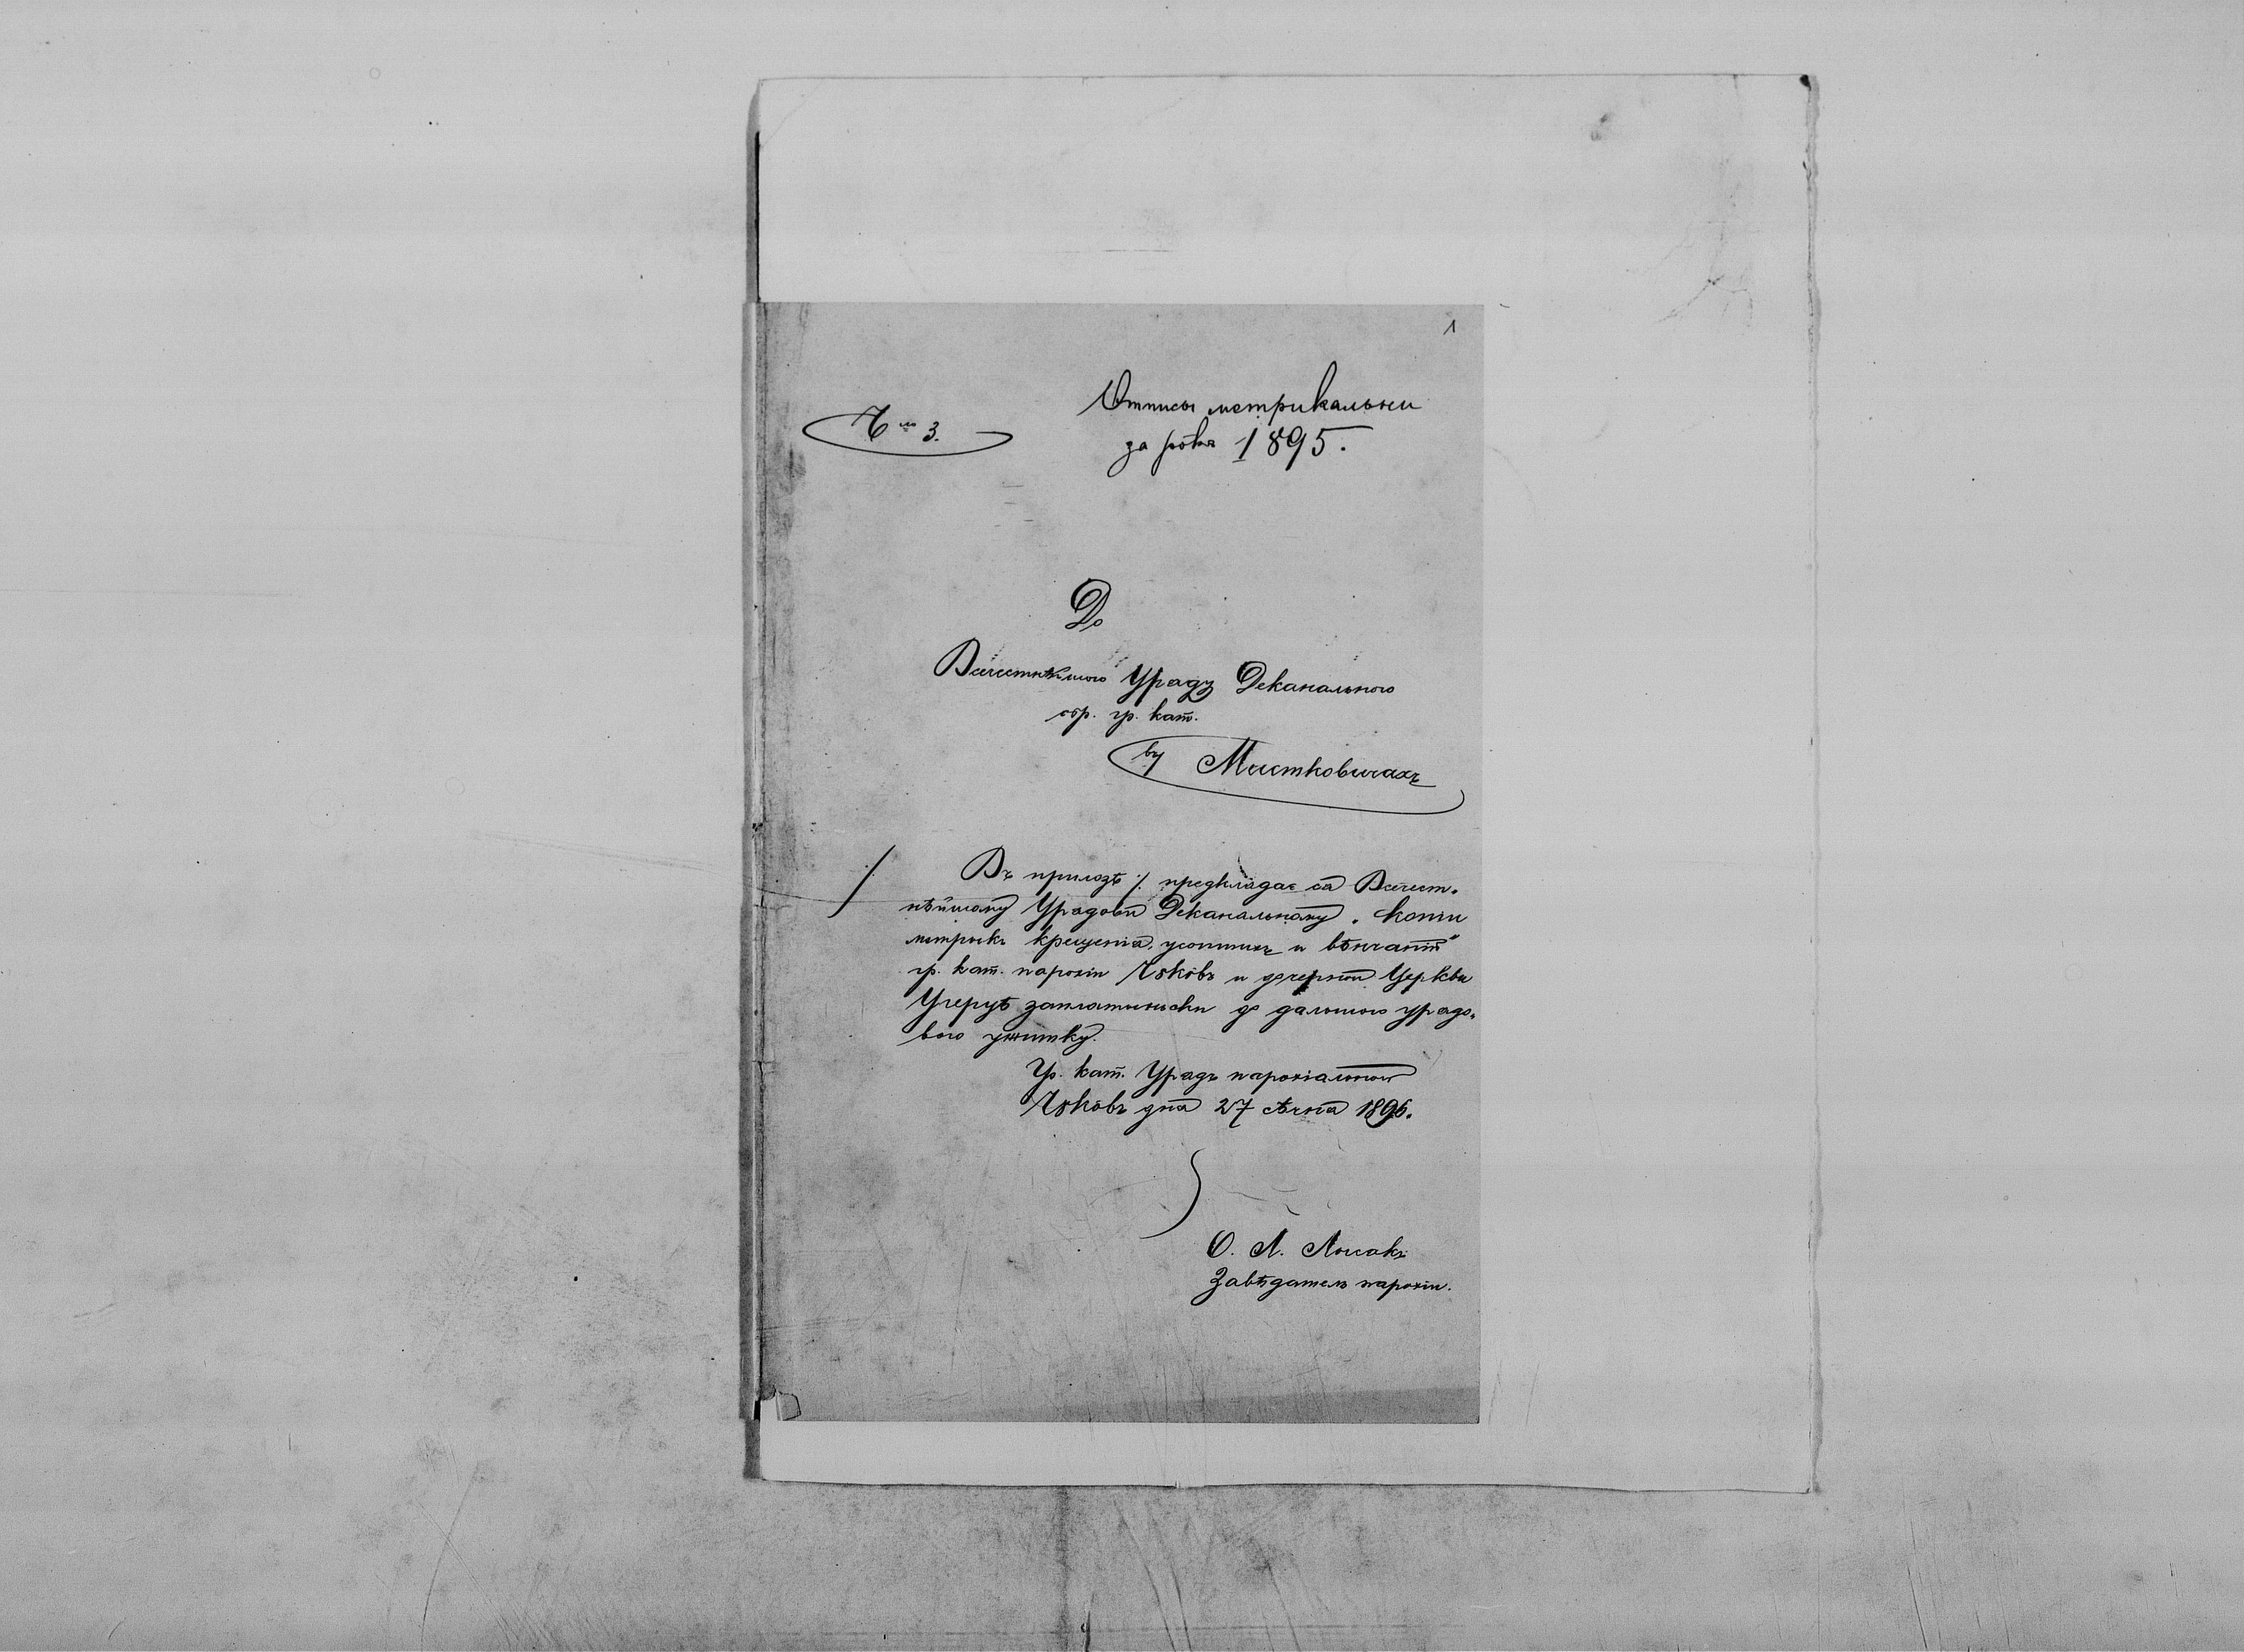 1
Отписы метрикальни
Ч. 3.
за рôкъ 1895.
До
Всечестнѣйшого Уряду Деканального
обр. гр. кат.
въ Мистковичахъ
Въ прилозѣ /. предкладає ся Всечест-
нѣйшому Урядови Деканальному „копіи
метрыкъ крещенія, усопшихъ и вѣнчаній“
гр. кат. парохіи Чуковъ и дочерной Церкви
Угерцѣ заплатиньски до дальшого урядо-
вого ужитку.
Гр. кат. Урядъ парохіальный
Чуковъ дня 27 сѣчня 1896.
О. Л.
Завѣдатель парохіи.